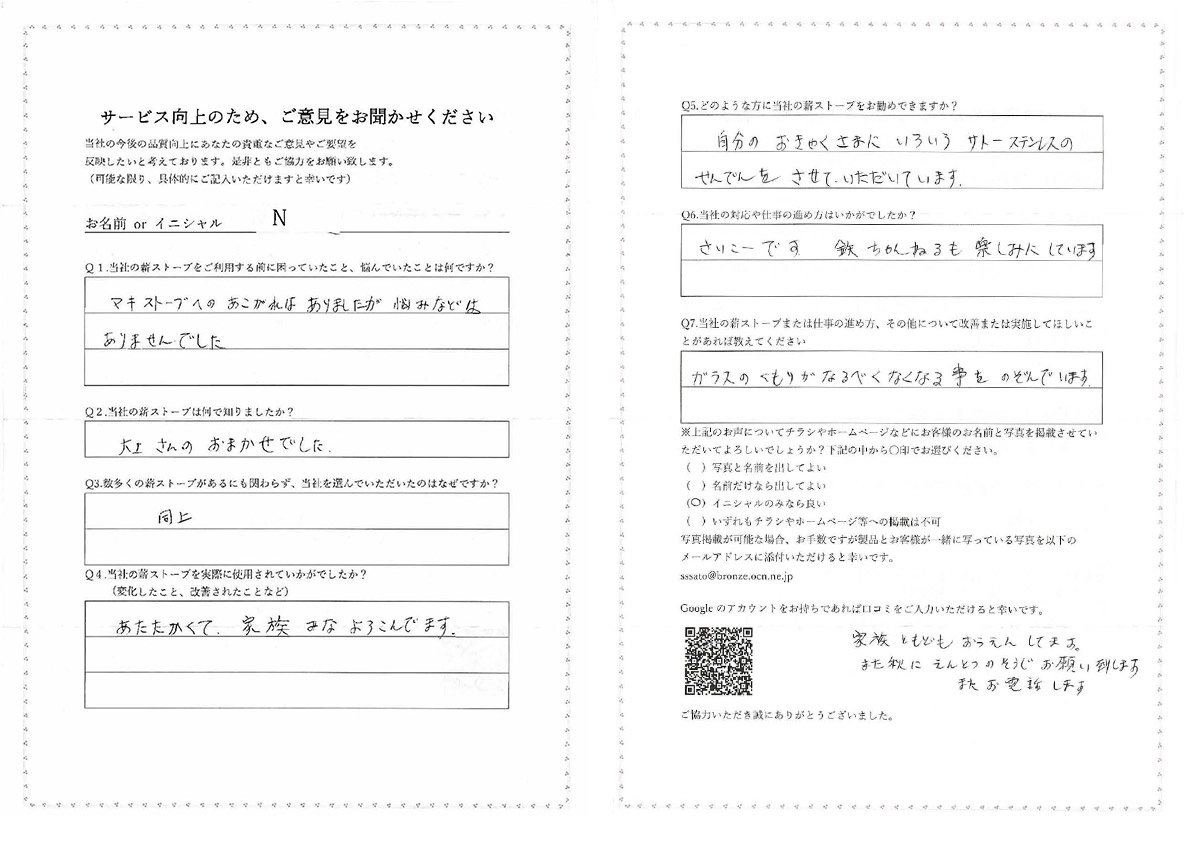 サービス向上のため、ご意見をお聞かせください
当社の今後の品質向上にあなたの貴重なご意見やご要望を
反映したいと考えております。是非ともご協力をお願い致します。
（可能な限り、具体的にご記入いただけますと幸いです）
お名前 or イニシャル N
Q１.当社の薪ストーブをご利用する前に困っていたこと、悩んでいたことは何ですか？
マキストーブへの あこがれは ありましたが 悩みなどは
ありませんでした
Q２.当社の薪ストーブは何で知りましたか？
大工 さんの おまかせでした.
Q3.数多くの薪ストーブがあるにも関わらず、当社を選んでいただいたのはなぜですか？
同上
Q４.当社の薪ストーブを実際に使用されていかがでしたか？
（変化したこと、改善されたことなど）
あたたかくて. 家族 みな よろこんでます.
Q5.どのような方に当社の薪ストーブをお勧めできますか？
自分の おきゃくさまに いろいろ サトーステンレスの
せんでんを させて.いただいています.
Q6.当社の対応や仕事の進め方はいかがでしたか？
さいこーです 鉄ちゃんねるも 楽しみにしています
Q7.当社の薪ストーブまたは仕事の進め方、その他について改善または実施してほしいこ
とがあれば教えてください
ガラスの くもりが なるべく なくなる 事を のぞんでいます.
※上記のお声についてチラシやホームページなどにお客様のお名前と写真を掲載させてい
ただいてよろしいでしょうか？下記の中から〇印でお選びください。
（ ）写真と名前を出してよい
（ ）名前だけなら出してよい
（〇）イニシャルのみなら良い
（ ）いずれもチラシやホームページ等への掲載は不可
写真掲載が可能な場合、お手数ですが製品とお客様が一緒に写っている写真を以下の
メールアドレスに添付いただけると幸いです。
sssato@bronze.ocn.ne.jp
Google のアカウントをお持ちであれば口コミをご入力いただけると幸いです。
家族 ともども おうえん してます。
また秋に えんとつのそうじ お願い致します
また お電話 します
ご協力いただき誠にありがとうございました。